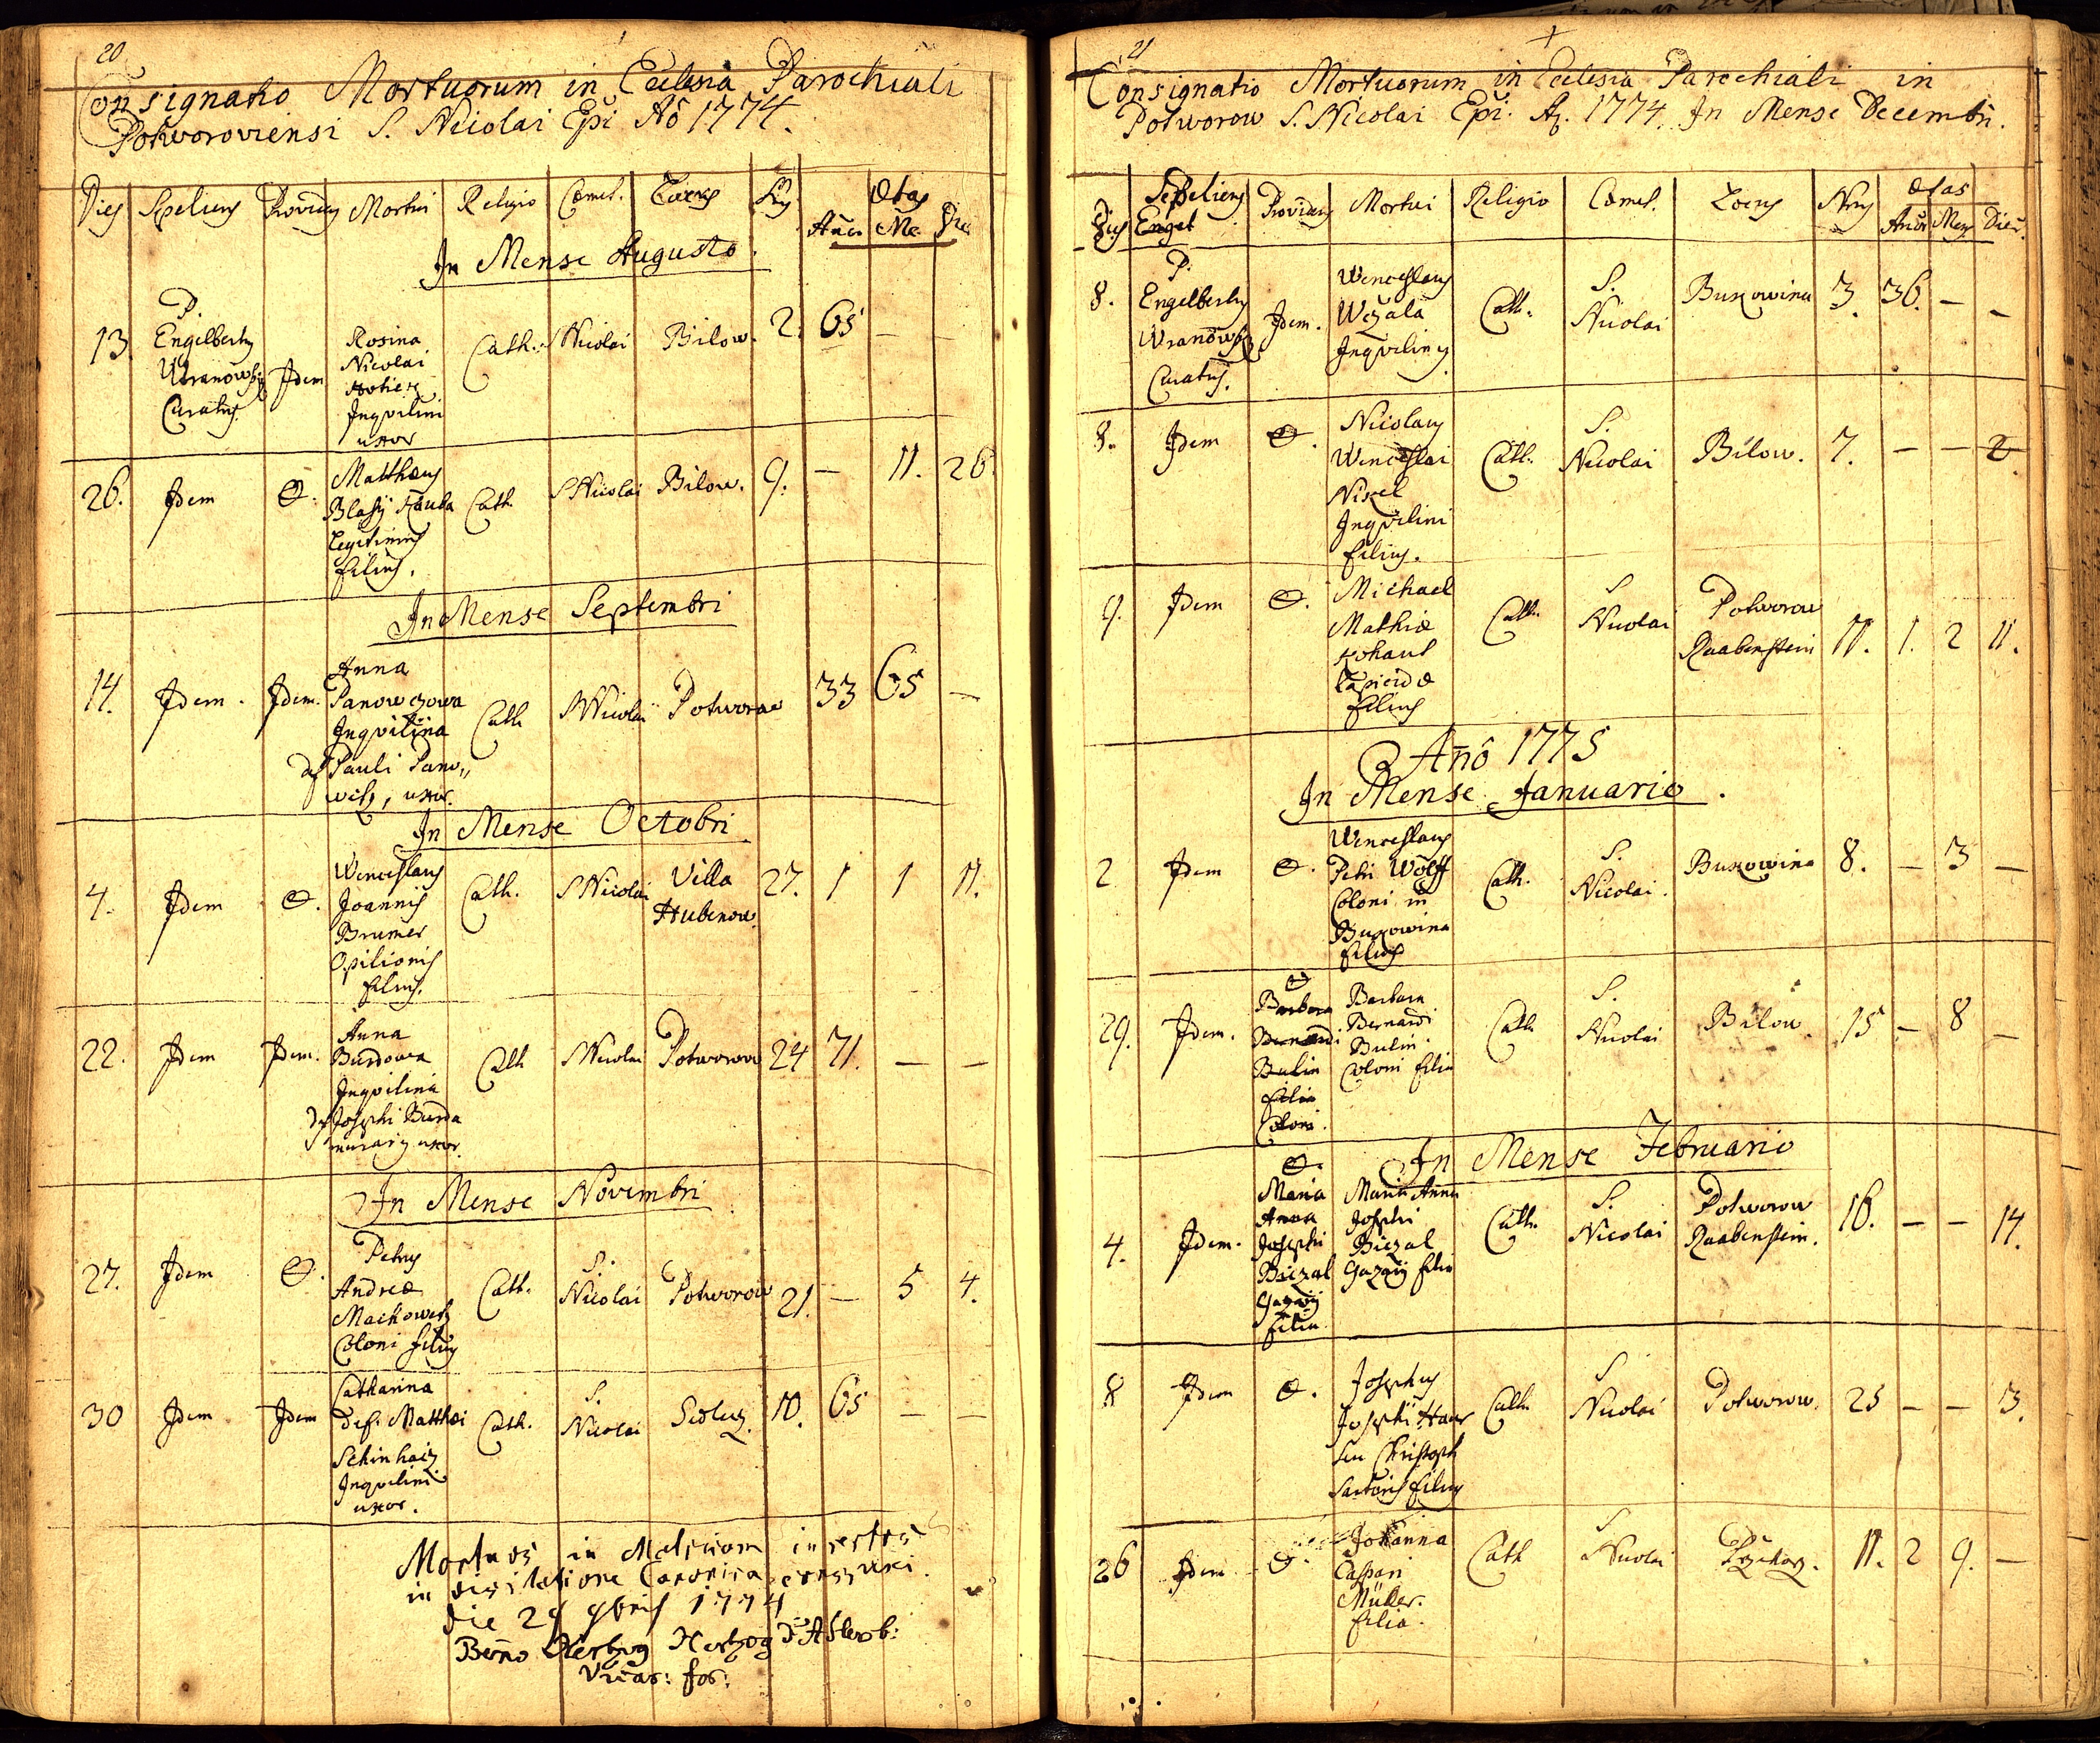 20
Consignatio Mortuorum in Ecclesia Parochiali
Potworoviensi S. Nicolai Epi Aõ 1774.
Dies Sepeliens Providens Mortui Religio Cœmet. Locus Nrus Ætas
Añor Me. Die
In Mense Augusto.
13. P. Engelbertus Wranowsky Curatus. Idem Rosina Nicolai Inqvilini uxor Cath. S Nicolai Bilow. 2. 65 —
26. Idem O. Matthæus Blasij Kauba Legitimus filius. Cath. S Nicolai Bilow. 9. — 11. 26.
In Mense Septembri
14. Idem. Idem. Anna Panowczowa Inqvilina def Pauli Pano„ witz, uxor. Cath S Nicolai Potworow 33 65 —
In Mense Octobri
4. Idem O. Wenceslaus Joannis Brumer Opilionis filius. Cath. S Nicolai Villa Hubenow. 27. 1 1 11.
22. Idem Idem. Anna Burdowa Inqvilina def Josephi Burda murarij uxor. Cath S Nicolai Potworow 24 71. — —
In Mense Novembri
27. Idem O. Petrus Andreæ Machowetz Coloni filius Cath. S. Nicolai Potworow 21. — 5 4.
30 Idem Idem Catharina def. Matthæi Schinhaiz Inqvilini uxor. Cath. S. Nicolai Sedlecz. 10. 65 — —
Mortuos in Matricam insertos
in visitatione Canonica conspexi
die 29 9bris 1774
Beno Hertzog Hertzog
Vicar: for:
21
Consignatio Mortuorum in Ecclesia Parochiali in
Potworow S. Nicolai Epi. Aõ. 1774. In Mense Decembri.
Dies Sepeliens Engel Providens Mortui Religio Cœmet. Locus Nrus Ætas
Añor Mens Dier.
8. P. Engelbertus Wranowsky Curatus. Idem. Wenceslaus Wczala Inqvilinus Cath. S. Nicolai Buxowina 3. 36. — —
8. Idem O. Nicolaus Wenceslai Nixel Inqvilini filius. Cath. S. Nicolai Bilow. 7. — — 2.
9. Idem O. Michael Mathiæ Kohaut Lapicidæ filius Cath. S Nicolai Potworow Raabenstein 11. 1. 2 11.
Añô 1775
In Mense Januario.
2 Idem O. Wenceslaus Petri Wolff Coloni in Buxowina filius Cath. S. Nicolai. Buxowina 8. — 3 —
29. Idem. O Barbora Bernardi Bulin filia Coloni. Barbara Bernardi Bulin. Coloni filia Cath S. Nicolai Bilow. 15 — 8 —
In Mense Februario
4. Idem. O. Maria Anna Josephi Biczal Gazarij filia Maria Anna Josephi Biczal Gazarij filia Cath. S. Nicolai Potworow Raabenstein. 16. — — 14.
8 Idem O. Josephus Josephi Haur seu Christoph Sartoris filius Cath. S Nicolai Potworow. 25 — — 3.
26 Idem O. Johanna Caspari Müller. filia. Cath S Nicolai 11. 2 9. —